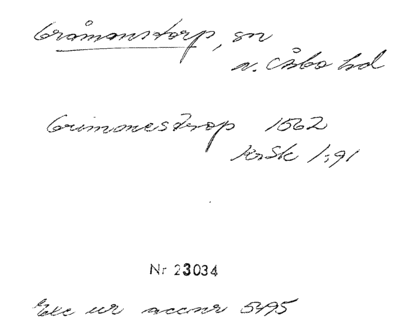 Gråmanstorp, sn
n. Åsbo hd
Grimonestrop 1562
KrSk 1:91
Nr 23034
Exc ur accnr 5495